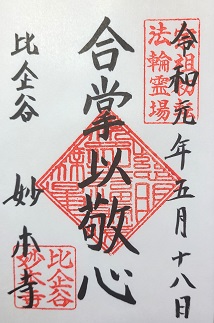 令和元年五月十八日
法輪霊場
合掌以敬心
比企谷
妙本寺
比企谷
妙本寺